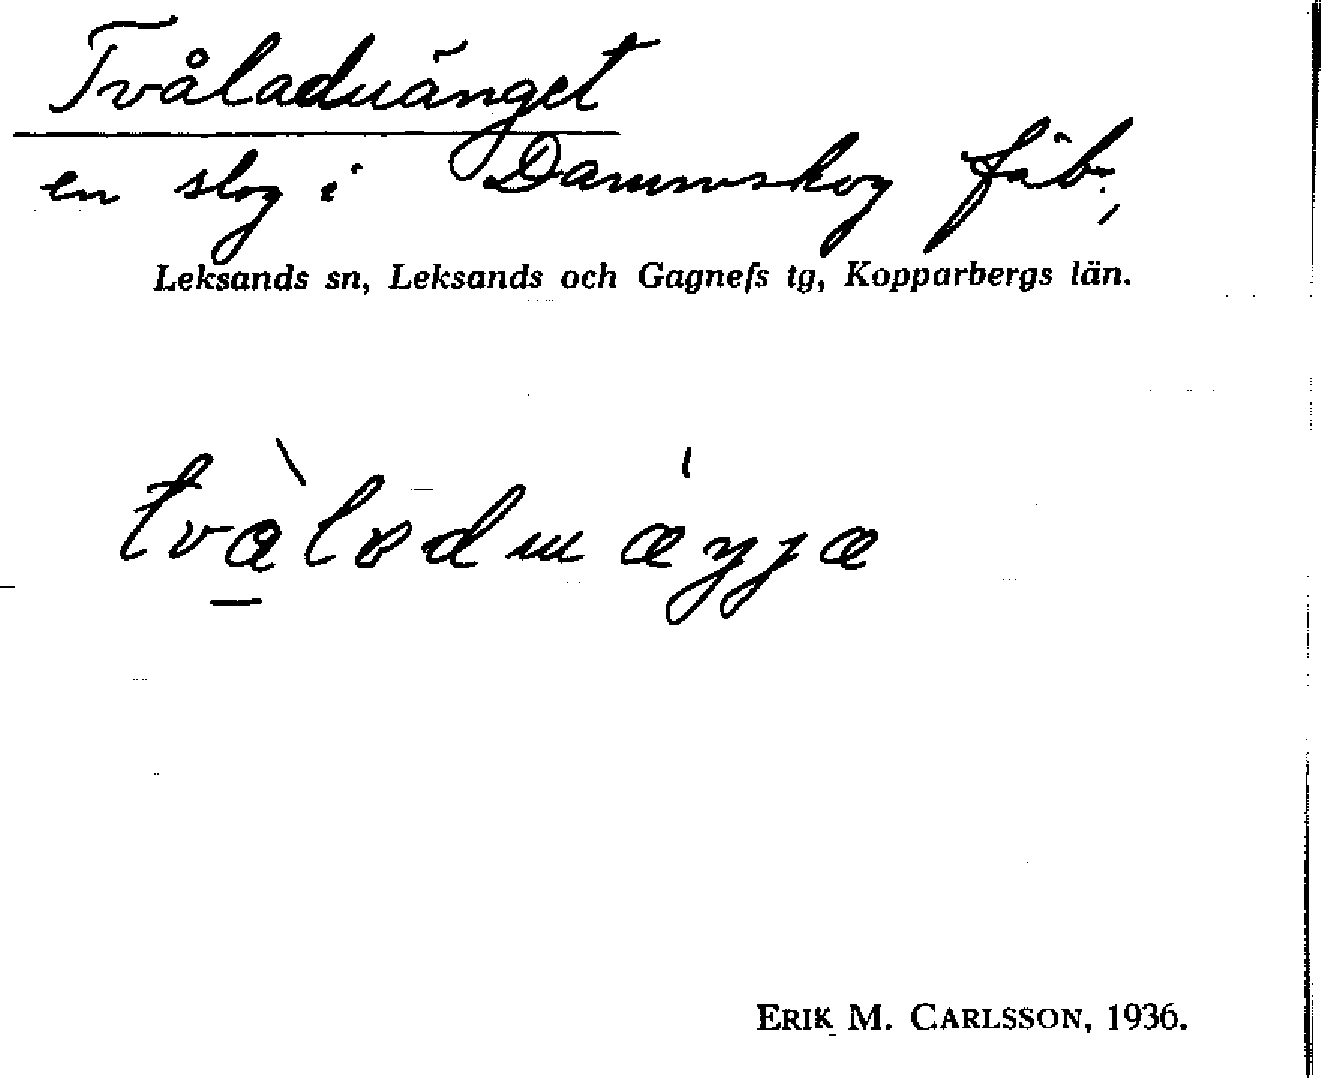 Tvåladuänget
en slog i Dammskog fäb.,
Leksands sn, Leksands och Gagnefs tg, Kopparbergs län.
ERIK M. CARLSSON, 1936.